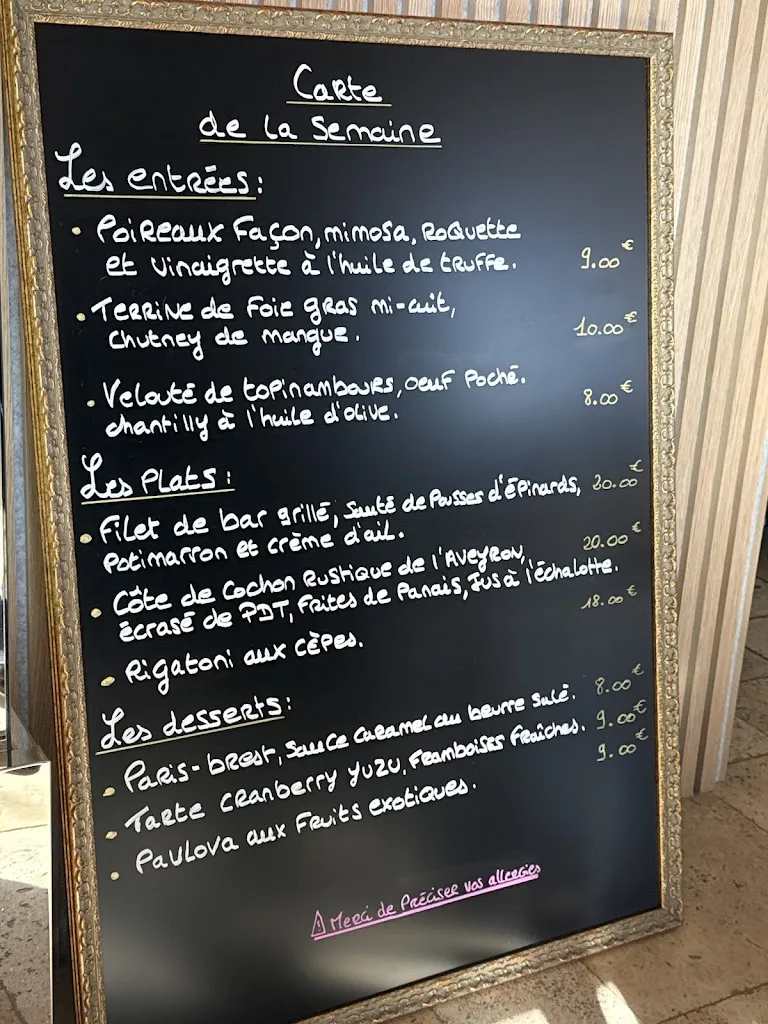 Carte
de la semaine
Les entrées :
• Poireaux façon, mimosa, roquette
et vinaigrette à l'huile de truffe. 9.00€
• Terrine de foie gras mi-cuit,
chutney de mangue. 10.00€
• Velouté de topinambours, oeuf poché.
chantilly à l'huile d'olive. 8.00€
Les plats :
• Filet de bar grillé, sauté de pousses d'épinards, 20.00€
potimarron et crème d'ail.
• Côte de cochon rustique de l'Aveyron, 20.00€
écrasé de PDT, frites de panais, jus à l'échalotte.
• Rigatoni aux cèpes. 18.00€
Les desserts :
• Paris-brest, sauce caramel au beurre salé. 8.00€
• Tarte cranberry yuzu, framboises fraîches. 9.00€
• Pavlova aux fruits exotiques. 9.00€
⚠ Merci de préciser vos allergies